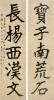 寶子南荒石
長楊西漢文